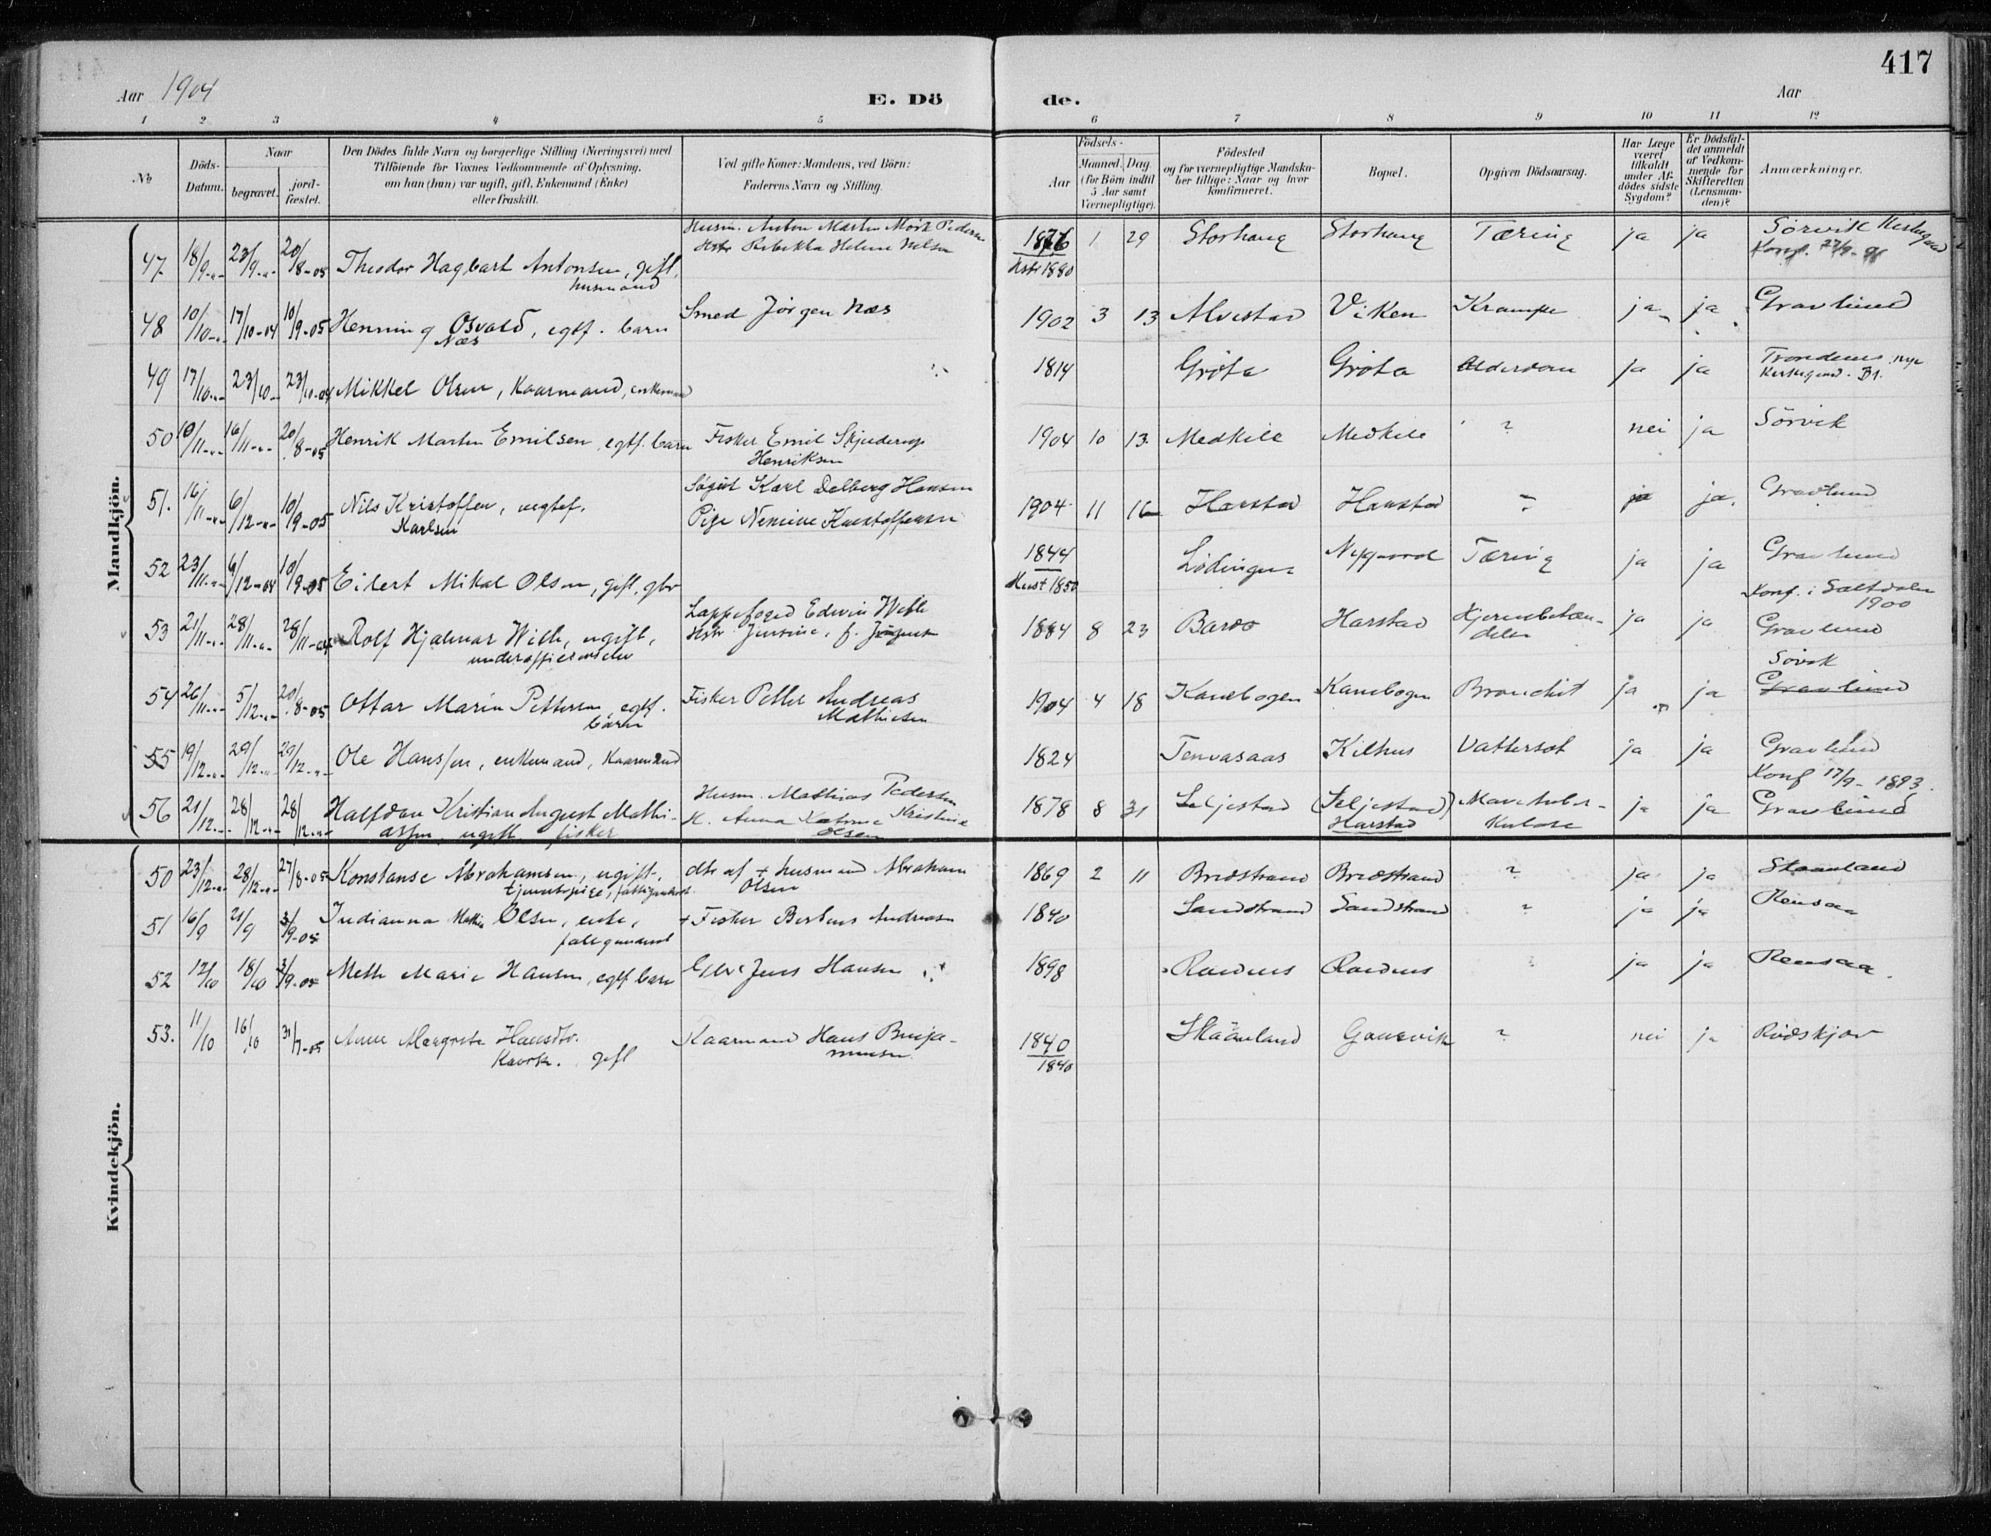 417
Aar 1904
E. Dö de.
Aar
1 2 3 4 5 6 7 8 9 10 11 12
No
Döds-Datum.
Naar
begravet.
jord-fæstet.
Den Dödes fulde Navn og borgerlige Stilling (Næringsvei) med
Tilföiende for Voxnes Vedkommende af Oplysning,
om han (hun) var ugift, gift, Enkemand (Enke)
eller fraskilt.
Ved gifte Koner: Mandens, ved Börn:
Faderens Navn og Stilling.
Födsels-
Aar
Maaned. Dag
(for Börn indtil
5 Aar samt
Værnepligtige).
Födested
og for værnepligtige Mandskaber tillige: Naar og hvor Konfirmeret.
Bopæl.
Opgiven Dödsaarsag.
Har Læge været tilkaldt under Afdödes sidste Sygdom?
Er Dödsfaldet anmeldt af Vedkommende for Skifteretten (Lensmanden)?
Anmærkninger.
Mandkjön.
Husm. Anton Martin Mörk Pedersen
47 18/9 23/9 20/8-05 Theodor Hagbart Antonsen, gift, husmand Hstr Rebekka Helene Nilsen 1876 1 29 Storhaug Storhaug Tæring ja ja Sörvik Kirkegaard
Hstr 1880 Konf.
48 10/10 17/10-04 10/9-05 Henning Osvald Næs, egtf. barn Smed Jörgen Næs 1902 3 13 Alvestad Viken Krampe ja ja Gravlund
49 17/10 23/10 23/10-04 Mikkel Olsen, Kaarmand, enkemand 1814 Gröta Gröta Alderdom ja ja Trondenes nye Kirkegaard
50 10/11 16/11 20/8-05 Henrik Martin Emilsen, egtf. barn Fisker Emil Skjuderup Henriksen 1904 10 13 Medkile Medkile ? nei ja Sörvik
51. 16/11 6/12 10/9-05 Nils Kristoffer Karlsen, uegtef. Karl Delberg Hansen
Pige Nemine Kristoffersen 1904 11 16 Harstad Harstad ja ja. Gravlund
52 23/11 6/12-04 10/9-05 Eilert Mikal Olsen, gift, gbr 1844 Lödingen Nygaard Tæring ja ja Gravlund
Hust 1850
53 21/11 28/11 28/11-04 Rolf Hjalmar Wibe, ugift, Lappefoged Edvin Wibe
Hstr Jensine, f. 1884 8 23 Bardo Harstad Hjernebetændelse ja ja Konf. i Saltdalen 1900
Gravlund
54 26/11 5/12 20/8-05 Ottar Marin Pettersen, egtf. barn Fisker Petter Andreas Mathisen 1904 4 18 Kanebogen Kanebogen Bronchit ja ja Sövik
Gravlund
55 19/12 29/12 29/12 Ole Hansen, enkemand, Kaarmand 1824 Tenvasaas Kilhus Vattersot ja ja Gravlund
56 21/12 28/12 28/12 Halfdan Kristian August Mathiassen, ugift fisker Husm. Mathias Pedersen
H. Anna Katrine Kristine Olsen 1878 8 31 Seljestad (Seljestad) Harstad ja ja Konf 17/9-1893.
Gravlund
Kvindekjön.
50 23/12 28/12 27/8-05 Konstanse Abrahamsen, ugift, tjenestepige dtr af + husmand Abraham Olsen 1869 2 11 Bredstrand Bredstrand ? ja ja Skaanland
51 16/9 21/9 3/9-05 Indianna Olsen, enke, + Fisker Andreasen 1840 Sandstrand Sandstrand ? ja ja Rensaa
52 12/10 18/10 3/9-05 Mette Marie Hansen, egtf. barn Gbr Jens Hansen 1898 ja ja Rensaa
53. 11/10 16/10 31/7-05 Anne Margrete Hansdtr. gift Kaarmand Hans Benjaminsen 1840
1840 Skaanland ? nei ja Rödskjær